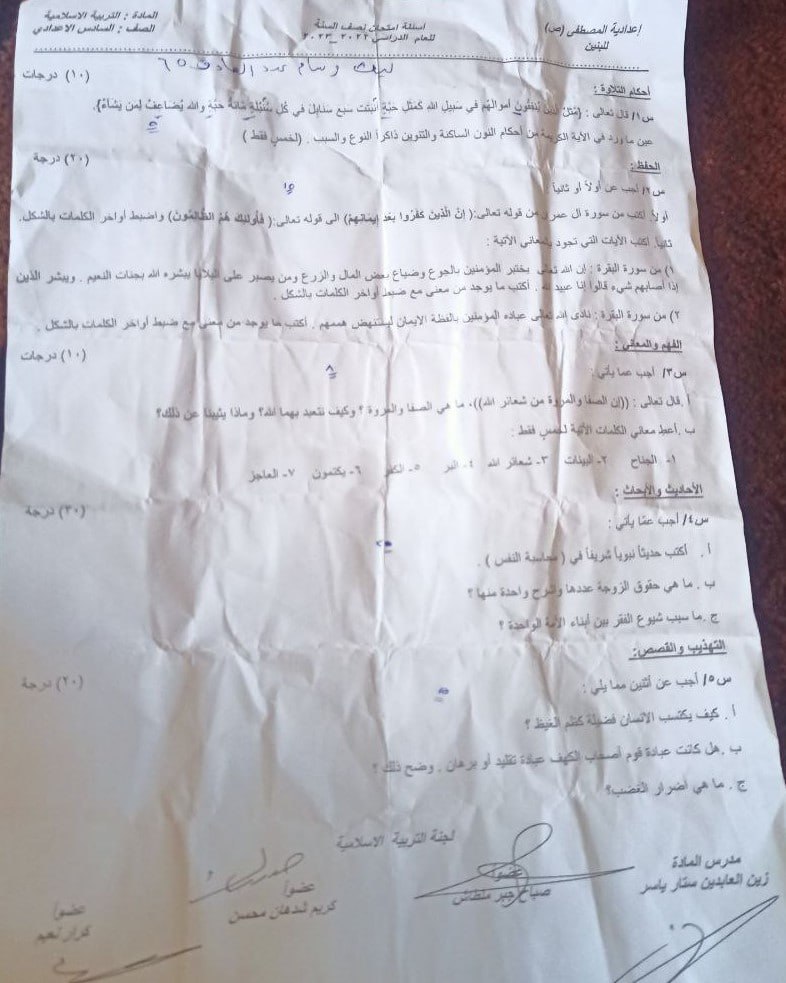 إعدادية المصطفى (ص)
للبنين
اسئلة إمتحان نصف السنة
للعام الدراسي ٢٠٢٢_٢٠٢٣
المادة : التربية الاسلامية
الصف : السادس الاعدادي
٦٥
أحكام التلاوة:
(١٠) درجات
س١/ قال تعالى : {مَثَلُ الذين يُنفِقُون أموالَهُم في سَبيلِ الله كَمَثَلِ حَبَّةٍ أنبَتَت سَبعَ سَنابِلَ في كُل سُنبُلَةٍ مِائةُ حَبَّةٍ والله يُضاعِفُ لِمن يشاءُ}.
عين ما ورد في الآية الكريمة من أحكام النون الساكنة والتنوين ذاكراً النوع والسبب . (لخمسٍ فقط )
٥
الحفظ:
(٢٠) درجة
س٢/ أجب عن أولاً أو ثانياً
١٥
أولاً أكتب من سورة آل عمران من قوله تعالى:( إنَّ الَّذينَ كَفَرُوا بَعدَ إيمَانِهِمْ) الى قوله تعالى:( فأولئكَ هُمُ الظالِمُونَ) واضبط أواخر الكلمات بالشكل.
ثانياً. أكتب الآيات التي تجود بالمعاني الآتية :
١) من سورة البقرة : إن الله تعالى يختبر المؤمنين بالجوع وضياع بعض المال والزرع ومن يصبر على البلايا يبشره الله بجنات النعيم . ويبشر الذين
إذا أصابهم شيء قالوا إنا عبيد لله . أكتب ما يوجد من معنى مع ضبط أواخر الكلمات بالشكل .
٢) من سورة البقرة : نادى الله تعالى عباده المؤمنين بالفظة الإيمان ليستنهض هممهم . أكتب ما يوجد من معنى مع ضبط أواخر الكلمات بالشكل .
الفهم والمعاني :
(١٠) درجات
س٣/ أجب عما يأتي :
٨
أ .قال تعالى : ((إن الصفا والمروة من شعائر الله))، ما هي الصفا والمروة ؟ وكيف نتعبد بهما الله؟ وماذا يثيبنا عن ذلك؟
ب .أعط معاني الكلمات الآتية لخمس فقط :
١- الجناح ٢- البينات ٣- شعائر الله ٤- البر ٥- الكفر ٦- يكتمون ٧- العاجز
الأحاديث والأبحاث :
(٣٠) درجة
س٤/ أجب عمّا يأتي :
أ . أكتب حديثاً نبوياً شريفاً في ( محاسبة النفس ) .
ب . ما هي حقوق الزوجة عددها واشرح واحدة منها ؟
ج . ما سبب شيوع الفقر بين أبناء الأمة الواحدة ؟
التهذيب والقصص:
(٢٠) درجة
س٥/ أجب عن أثنين مما يلي :
أ . كيف يكتسب الانسان فضيلة كظم الغيظ ؟
ب . هل كانت عبادة قوم أصحاب الكهف عبادة تقليد أو برهان . وضح ذلك ؟
ج . ما هي أضرار الغضب؟
لجنة التربية الاسلامية
مدرس المادة
زين العابدين ستار ياسر
عضواً
صباح جبر
عضواً
كريم محسن
عضواً
كرار نعيم